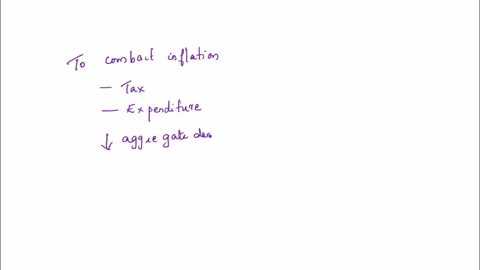 To combat inflation
— Tax
— Expenditure
↓ aggregate dem